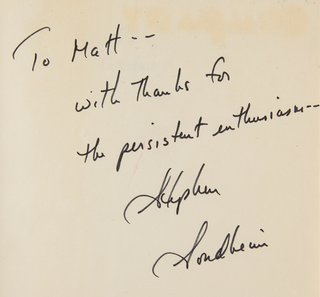 To Matt--
with thanks for
the persistent enthusiasm--
Stephen
Sondheim